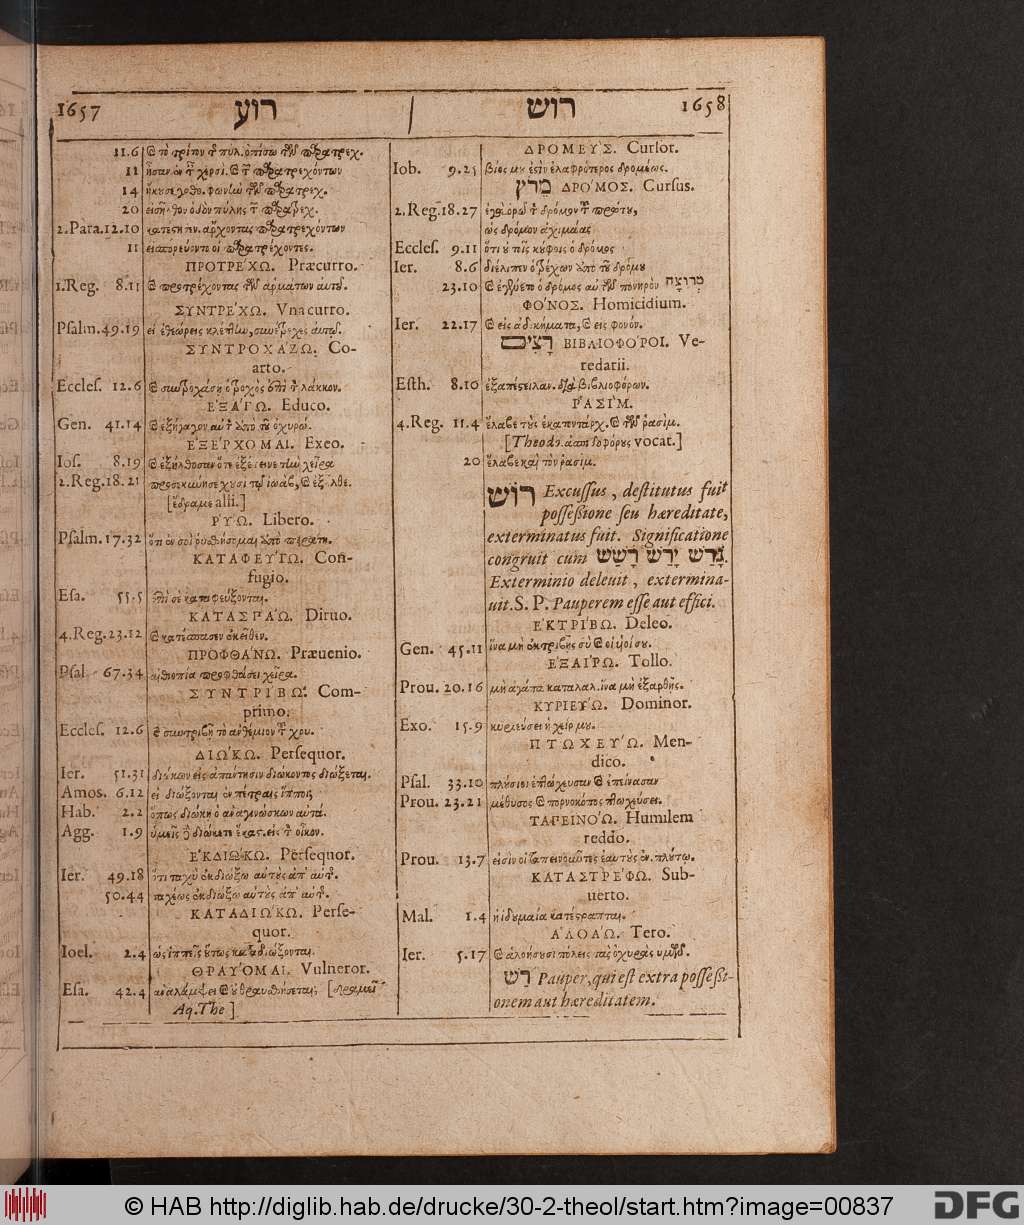 1657 רוע רוש 1658
11.6 ϗ τὸ τρίτον τ πύλ. ὀπίσω τῶν παρατρεχ.
11 ἦσαν ἐν τ χερσὶ. ϗ τ παρατρεχόντων
14 ἤκυσε φωνὼ τῶν παρατρεχ.
20 εἰσῆλθον ὁδὸν πύλης τ παρατρεχ.
2.Para.12.10 κατέστησεν. ἄρχοντας παρατρεχόντων
11 εἰσπορεύοντο οἱ παρατρέχοντες.
ΠΡΟΤΡΕ´ΧΩ. Præcurro.
1.Reg. 8.11 ϗ προτρέχοντας τῶν ἁρμάτων αὐτοῦ.
ΣΥΝΤΡΕ´ΧΩ. Vna curro.
Psalm.49.19 εἰ ἐθεώρεις κλέπτω, συνέτρεχες αὐτῷ.
ΣΥΝΤΡΟΧΑ´ΖΩ. Co-
arto.
Eccles. 12.6 ϗ συντροχάσῃ ὁ τροχὸς ἐπὶ τ λάκκον.
ΕʼΞΑ´ΓΩ. Educo.
Gen. 41.14 ϗ ἐξήγαγον αὐτ ἀπὸ τοῦ ὀχυρώ.
ΕʼΞΕ´ΡΧΟΜΑΙ. Exeo.
Ios. 8.19 ϗ ἐξήλθοσαν ὅτε ἐξέτεινε τὼ χεῖρα
2.Reg.18.21 προσεκύνησε χυσὶ τῷ ἰωὰβ, ϗ ἐξῆλθε.
[ἔδραμε alii.]
ΡʽΥ´Ω. Libero.
Psalm.17.32 ὅτι ἐν σοὶ ῥυσθήσομαι ἀπὸ πειρατη.
ΚΑΤΑΦΕΥ´ΓΩ. Con-
fugio.
Esa. 55.5 ἐπὶ σὲ καταφεύξονται.
ΚΑΤΑΣΠΑ´Ω. Diruo.
4.Reg.23.12 ϗ κατέσπασεν ἐκεῖθεν.
ΠΡΟΦΘΑ´ΝΩ. Præuenio.
Psal. 67.34 αἰθιοπία προφθάσει χεῖρα.
ΣΥΝΤΡΙ´ΒΩ. Com-
primo.
Eccles. 12.6 ϗ συντριβῇ τὸ ἀνθέμιον τ χρυ.
ΔΙΩ´ΚΩ. Persequor.
Ier. 51.31 διώκων εἰς ἀπάντησιν διώκοντος διώξεται.
Amos. 6.12 εἰ διώξονται ἐν πέτραις ἵπποι;
Hab. 2.2 ὅπως διώκῃ ὁ ἀναγινώσκων αὐτά.
Agg. 1.9 ὑμεῖς δὲ διώκετε ἕκας. εἰς τ οἶκον.
ΕʼΚΔΙΩ´ΚΩ. Persequor.
Ier. 49.18 ὅτι ταχὺ ἐκδιώξω αὐτὺς ἀπ' αὐτῆς.
50.44 ταχέως ἐκδιώξω αὐτὺς ἀπ' αὐτῆς.
ΚΑΤΑΔΙΩ´ΚΩ. Perse-
quor.
Ioel. 2.4 ὡς ἱππεῖς ὕτως καταδιώξονται.
ΘΡΑΥ´ΟΜΑΙ. Vulneror.
Esa. 42.4 ἀναλάμψει ϗ ὐ θραυσθήσεται; [δραμεῖ
Aq. The]
ΔΡΟΜΕΥ´Σ. Cursor.
Iob. 9.25 βίος μυ ἐστὶν ἐλαφρότερος δρομέως.
מֵרוֹץ ΔΡΟ´ΜΟΣ. Cursus.
2.Reg.18.27 ἐγὼ ὁρῶ τ δρόμον τ πρώτυ,
ὡς δρόμον ἀχιμάας
Eccles. 9.11 ὅτι ὐ τοῖς κύφοις ὁ δρόμος
Ier. 8.6 διέλιπεν ὁ τρέχων ἀπὸ τοῦ δρόμυ
23.10 ϗ ἐγένετο ὁ δρόμος αὐτῶν πονηρὸν מְרוּצָה
ΦΟ´ΝΟΣ. Homicidium.
Ier. 22.17 ϗ εἰς ἀδικήματα, ϗ εἰς φονόν.
רָצִים ΒΙΒΛΙΟΦΟ´ΡΟΙ. Ve-
redarii.
Esth. 8.10 ἐξαπέστειλαν. διὰ βιβλιοφόρων.
ΡʽΑΣΙ´Μ.
4.Reg. 11.4 ἔλαβε τὺς ἑκατοντάρχ. ϗ τῶν ῥασὶμ.
[Theodo. vocat.]
20 ἔλαβε καὶ τὸν ῥασίμ.
רוֹש Excussus, destitutus fuit
possessione seu hæreditate,
exterminatus fuit. Significatione
congruit cum גָּרַשׁ יָרַשׁ רָשַׁשׁ.
Exterminio deleuit, extermina-
uit. S. P. Pauperem esse aut effici.
ΕʼΚΤΡΙ´ΒΩ. Deleo.
Gen. 45.11 ἵνα μὴ ἐκτριβῇς σὺ ϗ οἱ υἱοί συ.
ΕʼΞΑΙ´ΡΩ. Tollo.
Prou. 20.16 μὴ ἀγάπα καταλαλ. ἵνα μὴ ἐξαρθῇς.
ΚΥΡΙΕΥ´Ω. Dominor.
Exo. 15.9 κυριεύσει ἡ χείρ μυ.
ΠΤΩΧΕΥ´Ω. Men-
dico.
Psal. 33.10 πλύσιοι ἐπτώχευσαν ϗ ἐπείνασαν
Prou. 23.21 μέθυσος ϗ πορνοκόπος πτωχεύσει.
ΤΑΠΕΙΝΟ´Ω. Humilem
reddo.
Prou. 13.7 εἰσὶν οἱ ταπεινοῦντες ἑαυτὺς ἐν. πλύτῳ.
ΚΑΤΑΣΤΡΕ´ΦΩ. Sub-
uerto.
Mal. 1.4 ἡ ἰδυμαία κατέστραπται.
ΑʼΛΟΑ´Ω. Tero.
Ier. 5.17 ϗ ἀλοήσυσι πόλεις τὰς ὀχυρὰς ὑμῶν.
רָשׁ Pauper, qui est extra possessi-
onem aut hæreditatem.
© HAB http://diglib.hab.de/drucke/30-2-theol/start.htm?image=00837 DFG